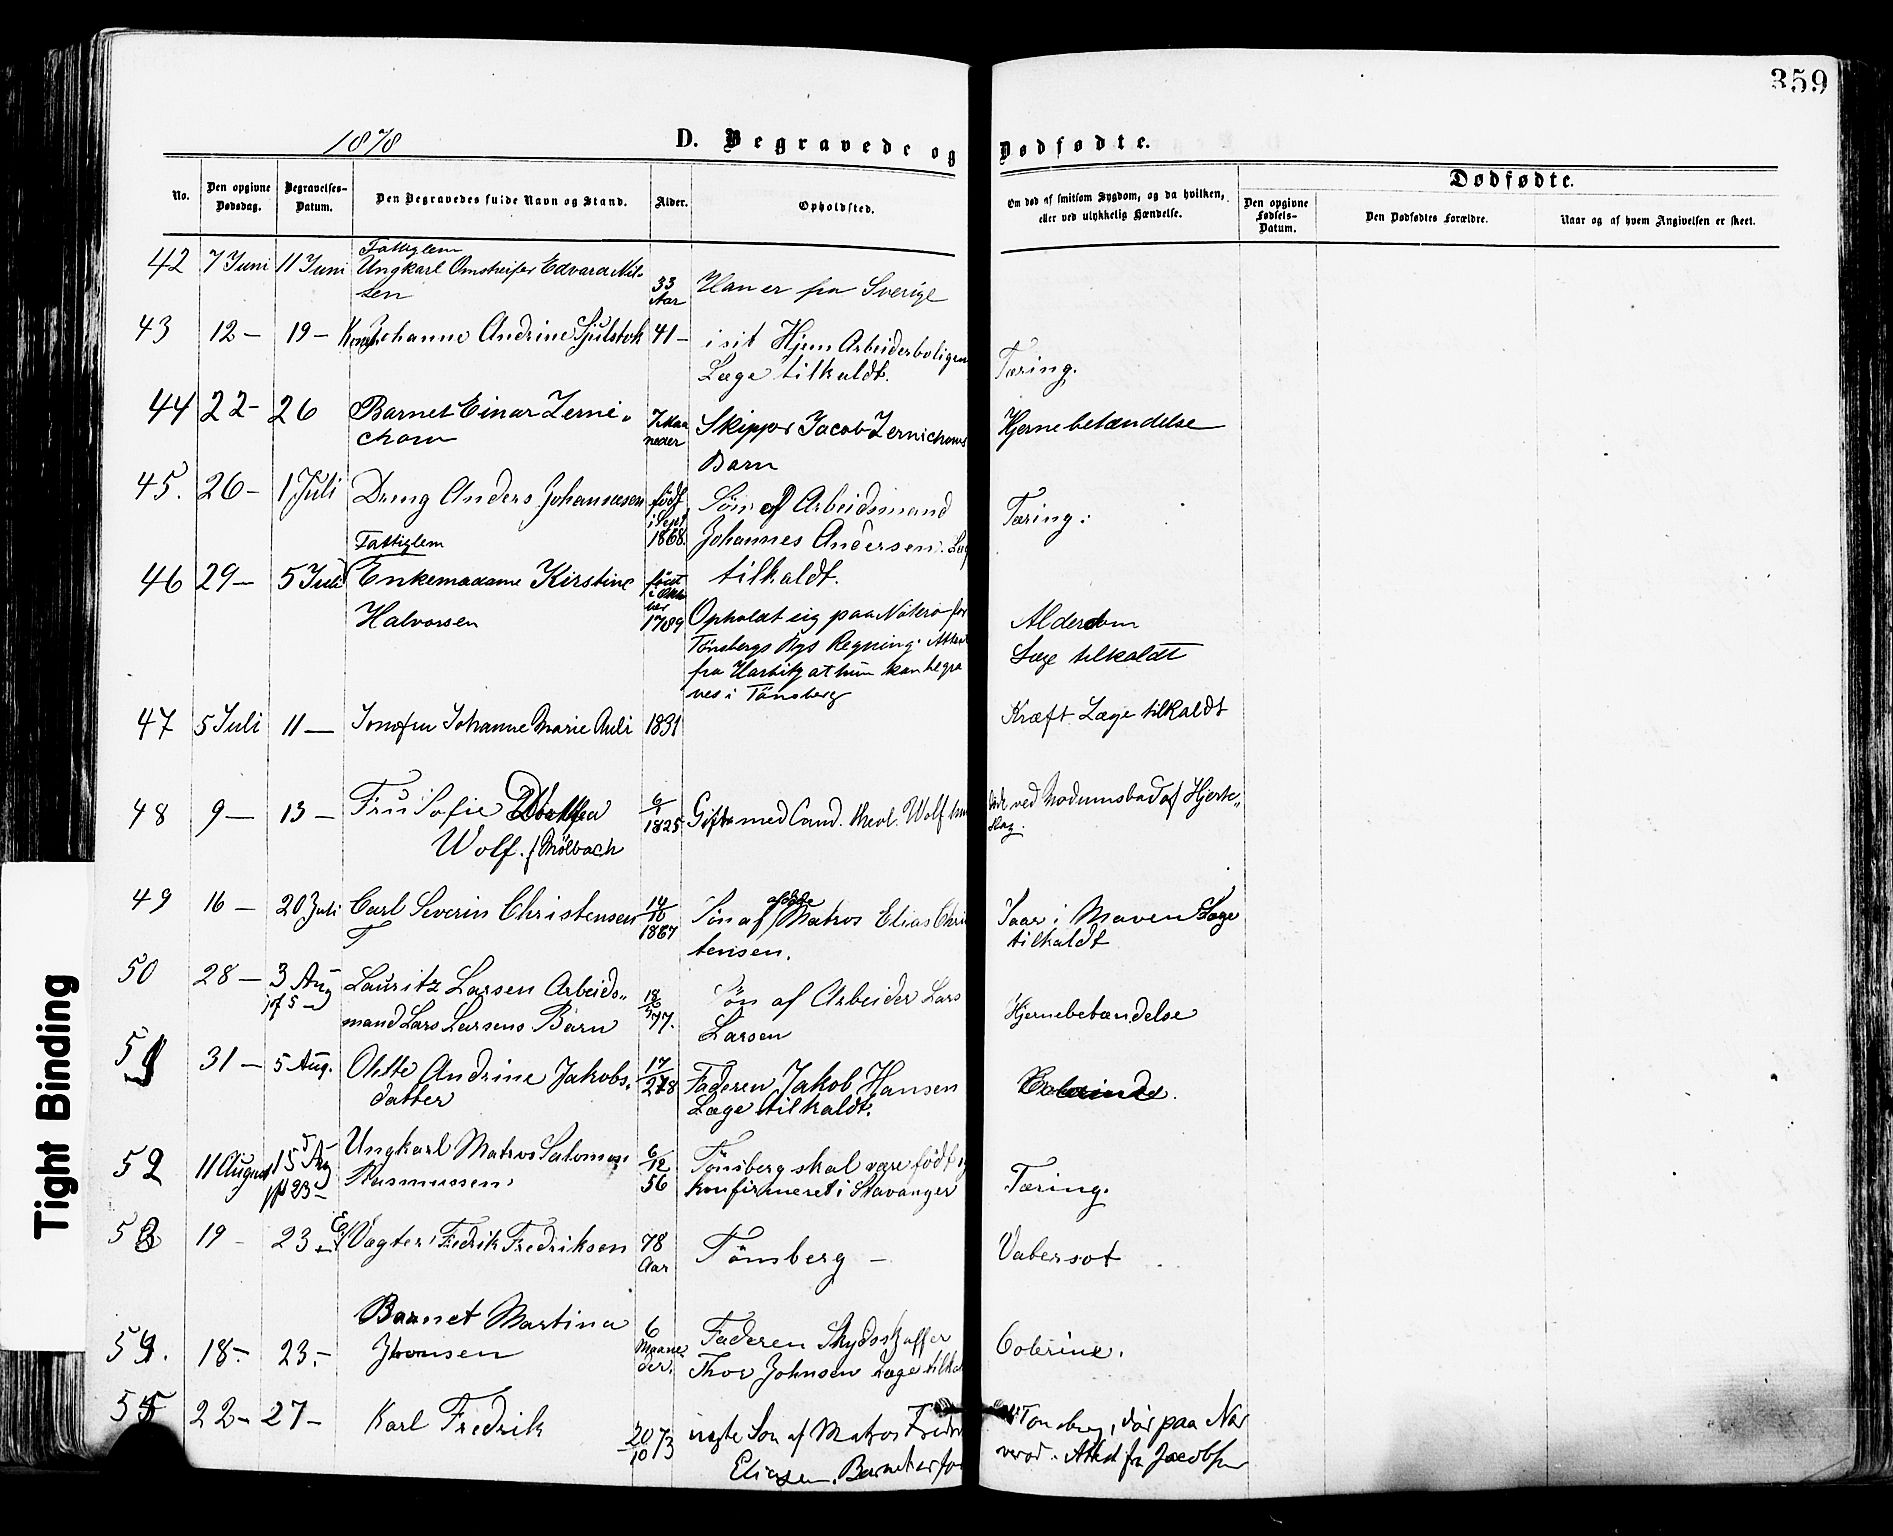 359
1878
D. Begravede og Dødfødte.
No.
Den opgivne Dødsdag.
Begravelses-Datum.
Den Begravedes fulde Navn og Stand.
Alder.
Opholdsted.
Om død af smitsom Sygdom, og da hvilken,
eller ved ulykkelig Hændelse.
Dødfødte.
Den opgivne Fødsels-Datum.
Den Dødfødtes Forældre.
Naar og af hvem Angivelsen er skeet.
Fattiglem
42 7 Juni 11 Juni Ungkarl Edvard Nil-
sen 33 Aar Han er fra Sverige
43 12 — 19 — Johanne Andrine 41 — i sit Hjem Arbeiderboligen
Læge tilkaldt. Tæring.
44 22 — 26 Barnet Einar Zerni-
chow 7 Maaneder Skipper Jacob Zernichows
Barn Hjernebetændelse
45. 26 — 1 Juli Dreng Anders Johannesen født i Sept 1868. Søn af Arbeidsmand
Johannes Andersen. Læge
tilkaldt. Tæring.
Fattiglem
46 29 — 5 Juli Enkemadame Kirstine
Halvorsen født i 1789 Opholdt sig paa Nøterø for
Tønsbergs Bys Regning. Attest
fra at hun kan begra
ves i Tønsberg Alderdom
Læge tilkaldt
47 5 Juli 11 — Jomfru Johanne Marie Auli 1831 Kræft. Læge tilkaldt
48 9 — 13 — Fru Sofie
Wolf. f. Mølbach 6/1 1825 Gift med Cand. theol. Wolf
død ved Modumsbad af Hjerte-
slag.
49 16 — 20 Juli Carl Severin Christensen 14/10 1867 Søn af afdøde Matros Elias Chris
tensen. Saar i Maven Læge
tilkaldt
50 28 — 3 Aug
jf 5 — Lauritz Larsen Arbeids-
mand Lars Larsens Barn 77. Søn af Arbeider Lars
Larsen Hjernebetændelse
51 31 — 5 Aug. Olette Andrine Jakobs-
datter 17/2 78 Faderen Jakob Hansen
Læge tilkaldt.
52 11 August 15 Aug
jf 23 — Ungkarl Matros Salomon
Rasmussen 6/12 56 Tønsberg skal være født og
konfirmeret i Stavanger Tæring.
53 19 — 23 — Vægter Fredrik Fredriksen 78 Aar Tønsberg — Vatersot
54. 18 — 23. — Barnet Martina
Jhonsen 6 Maaneder. Faderen Skydsskaffer
Thor Johnsen Læge tilkaldt Colerine.
55 22 — 27 — Karl Fredrik 20/10 73 uægte Søn af Matros Fredrik
Eliasen. Barnet er fød
i Tønsberg, dør paa Nø
terø. Attest fra Jacobsen
Tight Binding